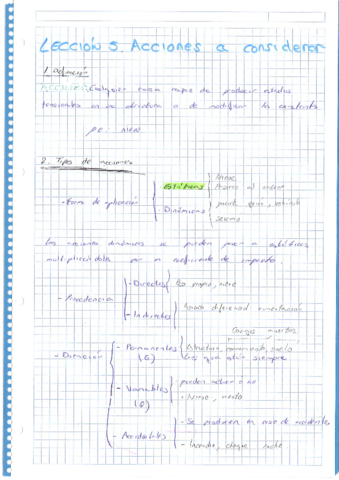 LECCIÓN 5. Acciones a considerar
1. Definición
ACCIONES: Cualquier causa capaz de producir estados
tensionales en una estructura o de modificar los existente
pe: nieve
2. Tipos de acciones
Nieve
Estáticas
- Forma de aplicación
- Dinámicas
puente grúa, vehículo
Seísmo
Las acciones dinámicas se pueden pasar a estáticas
multiplicándolas por un coeficiente de impacto.
- Directas
Peso propio, nieve
- Procedencia
- Indirectas
Asiento diferencial cimentación
Cargas muertas
- Permanentes
(G)
Estructura, cerramiento, suelo
Los que están siempre
- Duración
- Variables
(Q)
- pueden actuar o no
- nieve, viento
- Accidentales
- Se producen en caso de accidentes
- Incendio, choque coche